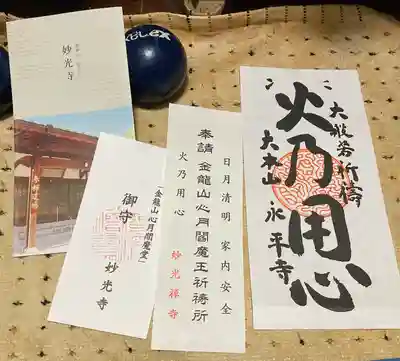 妙光寺
御守
(金龍山心月閻魔堂)
妙光寺
日月清明 家内安全
奉請 金龍山心月閻魔王祈祷所
火乃用心
妙光禅寺
大般若祈祷
火乃用心
大本山 永平寺